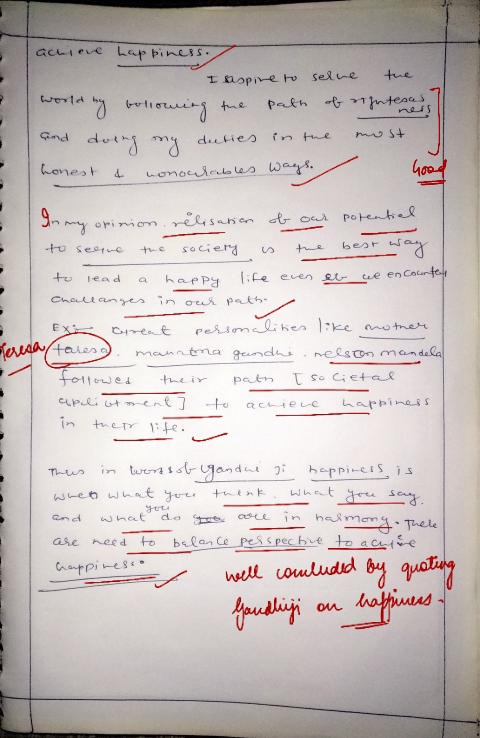 achieve happiness.
I aspire to serve the
world by following the path of
ness
and doing my duties in the most
honest & honourables ways.
Good
In my opinion. relisation of our potential
to seerve the society is the best way
to lead a happy life even we encounter
challenges in our path.
Ex:- Great personalities like mother
Teresa
taresa. mahatma gandhi. nelson mandela
followed their path [societal
] to achieve happiness
in their life.
Thus in words of Gandhi ji happiness is
what you think. what you say.
you
and what do are in harmony. There
are need to balance perspective to achieve
happiness.
Well concluded by quoting
Gandhiji on happiness.